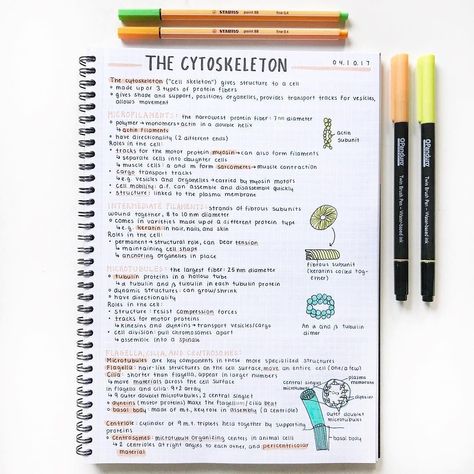 STABILO point 88 fine 0.4
STABILO point 88 fine 0.4
THE CYTOSKELETON
04.10.17
The cytoskeleton ("cell skeleton") gives structure to a cell
• made up of 3 types of protein fibers
• gives shape and support, positions organelles, provides transport tracks for vesicles,
allows movement
MICROFILAMENTS: the narrowest protein fiber: 7nm diameter
• polymer → monomers: actin in a double helix
↳ actin filaments
• have directionality (2 different ends)
Roles in the cell:
• tracks for the motor protein myosin → can also form filaments
↳ separate cells into daughter cells
↳ muscle cells: a and m form sarcomeres → muscle contraction
• cargo transport tracks
↳ e.g. vesicles and organelles → carried by myosin motors
• cell mobility: a.f. can assemble and disassemble quickly
• structure: linked to the plasma membrane
actin
subunit
INTERMEDIATE FILAMENTS: strands of fibrous subunits
wound together, 8 to 10 nm diameter
• comes in varieties made up of a different protein type
↳ e.g. keratin → in hair, nails, and skin
Roles in the cell:
• permanent → structural role, can bear tension
↳ maintaining cell shape
↳ anchoring organelles in place
fibrous subunit
(keratins coiled tog-
ether)
MICROTUBULES: the largest fiber: 25 nm diameter
• tubulin proteins in a hollow tube
↳ α tubulin and β tubulin in each tubulin protein
• dynamic structures: can grow/shrink
• have directionality
Roles in the cell:
• structure: resist compression forces
• tracks for motor proteins
↳ kinesins and dyneins → transport vesicles/cargo
• cell division: pull chromosomes apart
↳ assemble into a spindle
An α and β tubulin
dimer
FLAGELLA, CILIA, AND CENTROSOMES:
Microtubules are key components in these more specialized structures
Flagella: hair-like structures on the cell surface, move an entire cell (one/few)
Cilia: shorter than flagella, appear in larger numbers
↳ move materials across the cell surface
• Flagella and cilia: 9+2 array
↳ 9 outer doublet microtubules, 2 central singlet
• dyneins (motor proteins) make the flagellum/cilia beat
• basal body: made of m.t., key role in assembly (a centriole)
Centriole: cylinder of 9 m.t. triplets held together by supporting
proteins
• Centrosomes: microtubule organizing centers in animal cells
↳ 2 centrioles at right angles to each other, and pericentriolar
material
central singlet
microtubules
plasma
membrane
outer doublet
microtubules
basal body
Opandura
Twin Brush Pen • Water-based ink
Opandura
Twin Brush Pen • Water-based ink